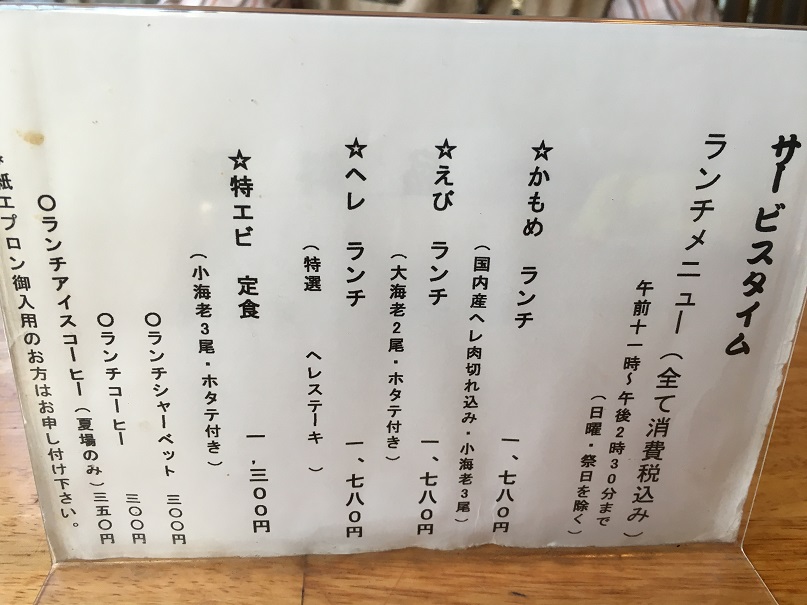 サービスタイム
ランチメニュー（全て消費税込み）
午前十一時～午後2時30分まで
（日曜・祭日を除く）
☆かもめ ランチ 一、七八〇円
（国内産ヘレ肉切れ込み・小海老3尾）
☆えび ランチ 一、七八〇円
（大海老2尾・ホタテ付き）
☆ヘレ ランチ 一、七八〇円
（特選 ヘレステーキ ）
☆特エビ 定食 一,三〇〇円
（小海老3尾・ホタテ付き）
〇ランチシャーベット 三〇〇円
〇ランチコーヒー 三〇〇円
〇ランチアイスコーヒー（夏場のみ）三五〇円
☆紙エプロン御入用のお方はお申し付け下さい。